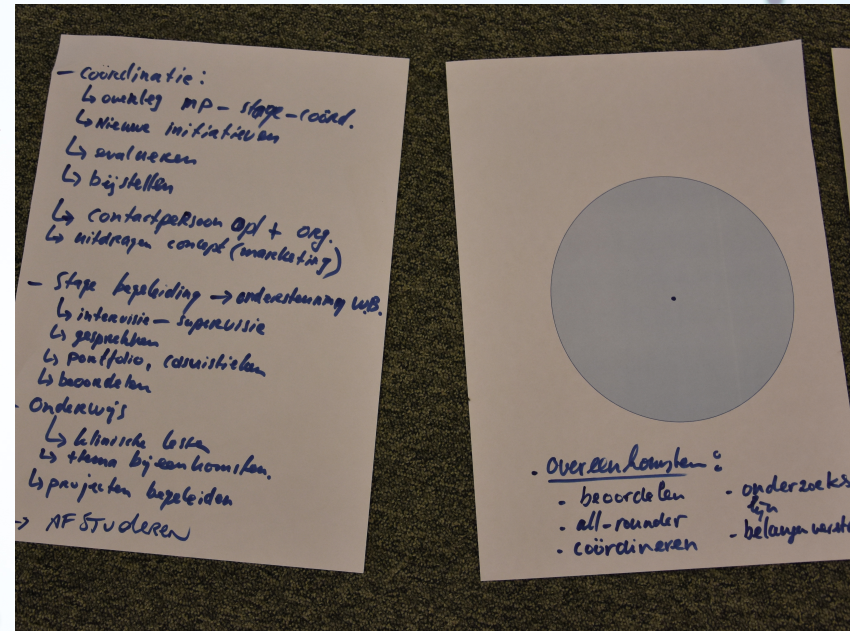 - Coördinatie:
↳ overleg MP - stage-coörd.
↳ Nieuwe initiatieven
↳ evalueren
↳ bijstellen
↳ contactpersoon opl + org.
↳ uitdragen concept (marketing)
- Stage begeleiding → ondersteuning W.B.
↳ intervisie - supervisie
↳ gesprekken
↳ portfolio, casuistieken
↳ beoordelen
- Onderwijs
↳ klinische lessen
↳ thema bijeenkomsten.
↳ projecten begeleiden
→ AFSTUDEREN
. Overeenkomsten:
. beoordelen
. all-rounder
. coördineren
- onderzoeks
lijn
- belangen